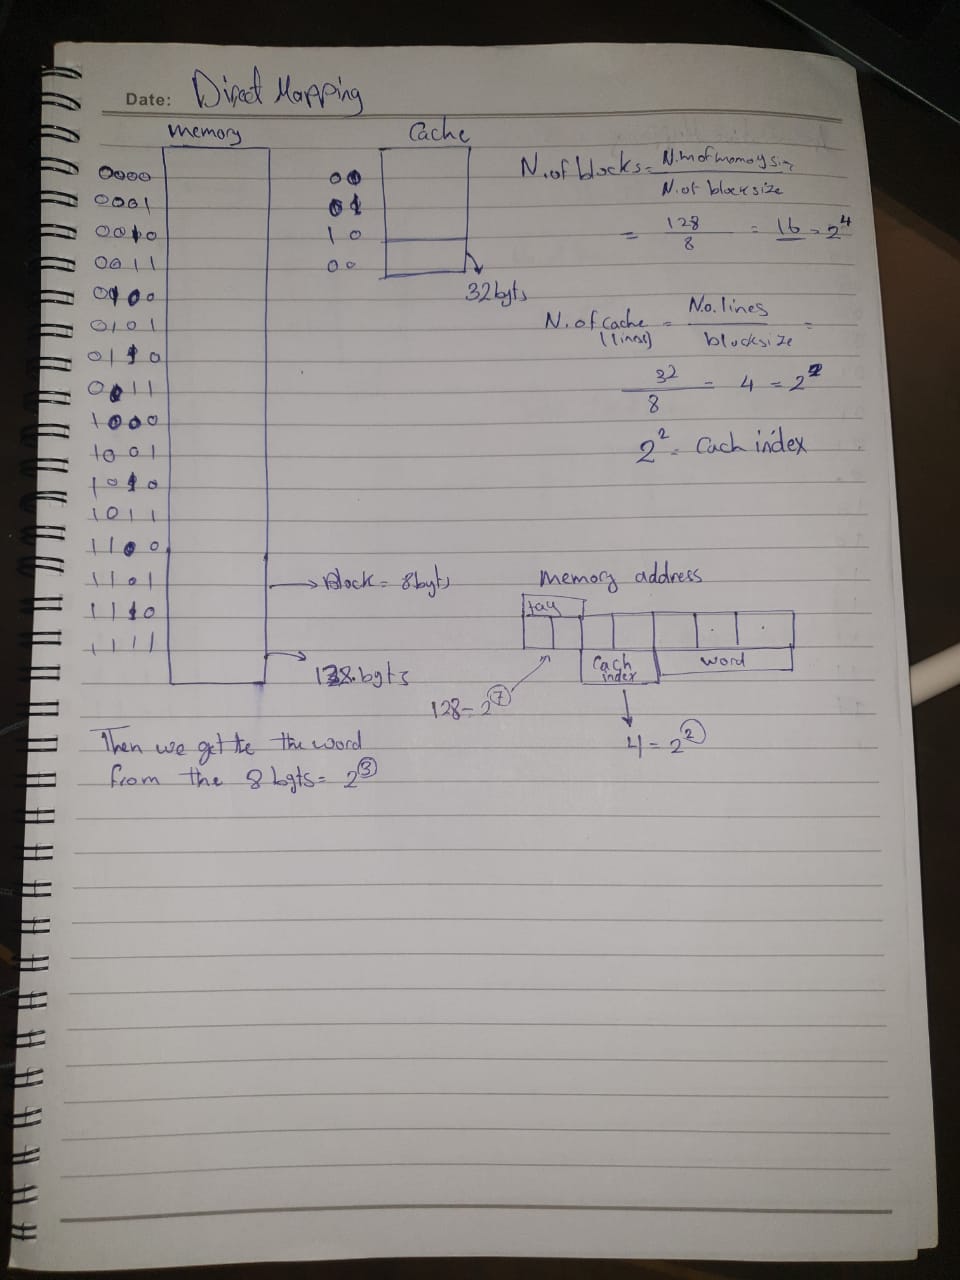 Date: Direct Mapping
memory
Cache
0000
0001
0010
0011
0100
0101
0110
0011
1000
1001
1010
1011
1100
1101
1110
1111
00
01
10
00
32 byts
Block = 8 byts
128 byts
N.of blocks =
N.of block size
= 128 / 8 = 16 = 2^4
N. of cache (lines) = N.o. lines / blocksize =
32 / 8 = 4 = 2^2
2^2 = Cach index
Memory address
tag
Cach index
word
128 = 2^7
4 = 2^2
Then we get the the word
from the 8 byts = 2^3